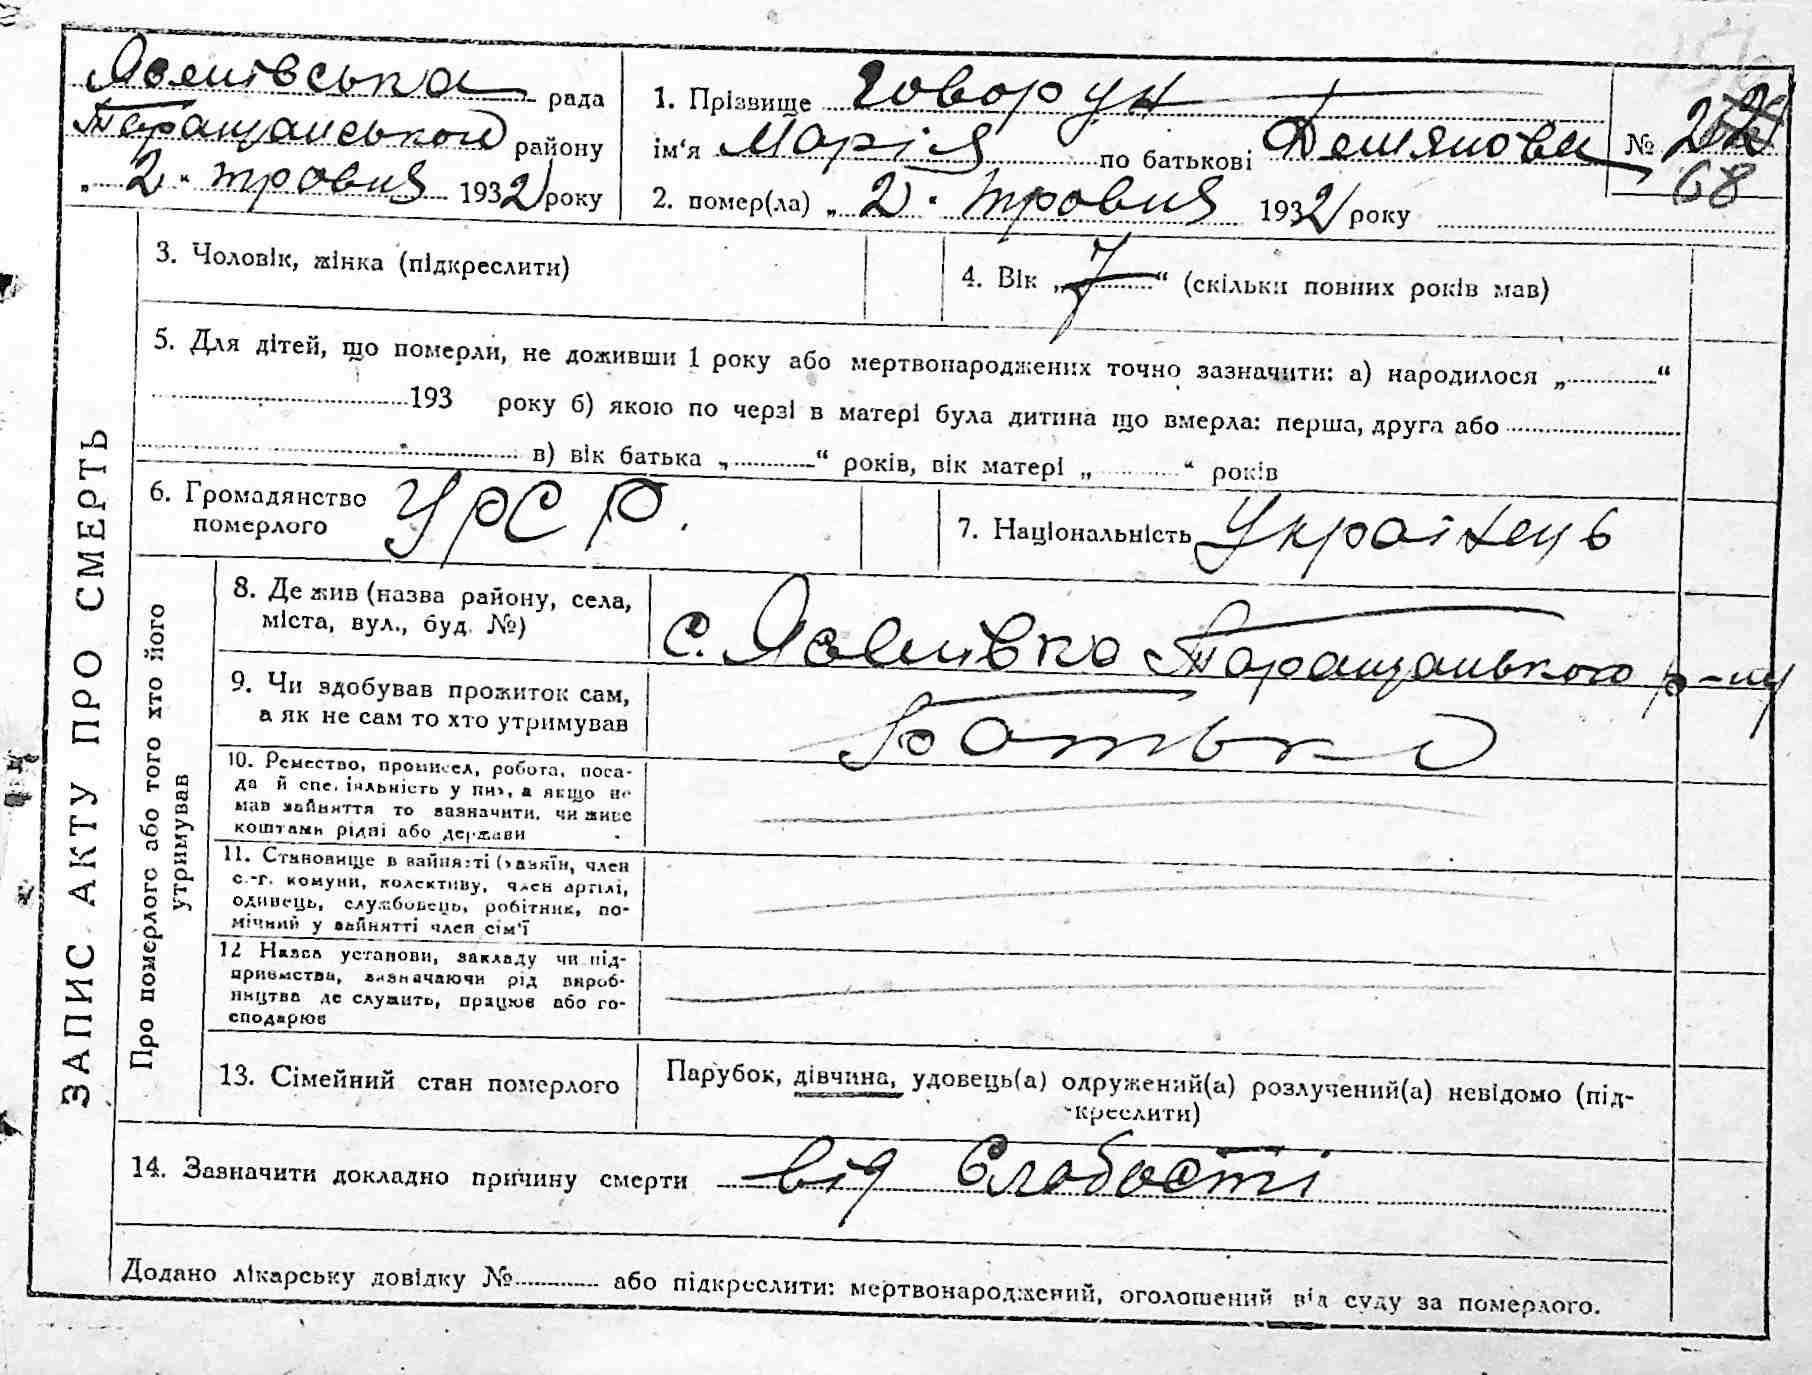 Лвешівська рада
Таращанського району
„ 2 " травня 1932 року
1. Прізвище Говорун
ім'я Марія по батькові Демянова
2. помер(ла) „ 2 " травня 1932 року
№
68
ЗАПИС АКТУ ПРО СМЕРТЬ
3. Чоловік, жінка (підкреслити)
4. Вік „ 7 “ (скільки повних років мав)
5. Для дітей, що померли, не доживши 1 року або мертвонароджених точно зазначити: а) народилося „ “
193 року б) якою по черзі в матері була дитина що вмерла: перша, друга або
в) вік батька „ “ років, вік матері „ “ років
6. Громадянство
померлого
УРСР.
7. Національність Українець
Про померлого або того хто його
утримував
8. Де жив (назва району, села,
міста, вул., буд. №)
с. Таращанського р-ну
9. Чи здобував прожиток сам,
а як не сам то хто утримував
Батько
10. Ремество, промисел, робота, поса-
да й спеціяльність у них, а якщо не
мав зайняття то зазначити, чи живе
коштами рідні або держави
11. Становище в зайнятті (хазяїн, член
с.-г. комуни, колективу, член артілі,
одинець, службовець, робітник, по-
мічний у зайнятті член сім'ї
12 Назва установи, закладу чи під-
приємства, зазначаючи рід вироб-
ництва де служить, працює або го-
сподарює
13. Сімейний стан померлого
Парубок, дівчина, удовець(а) одружений(а) розлучений(а) невідомо (під-
креслити)
14. Зазначити докладно причину смерти від Слабості
Додано лікарську довідку № або підкреслити: мертвонароджений, оголошений від суду за померлого.